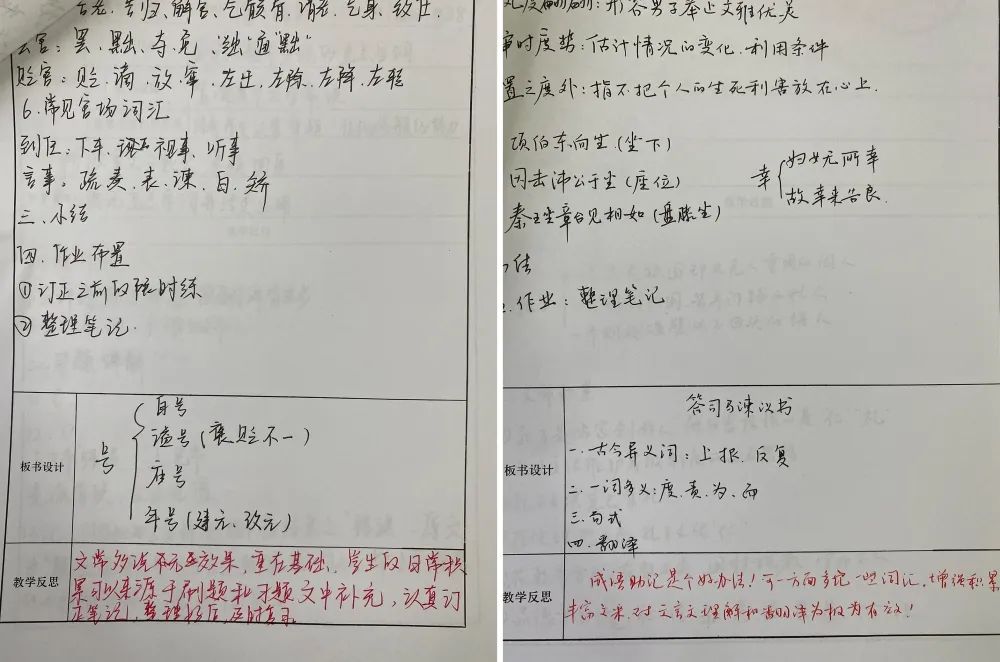 去官：罢、黜、夺、免 "绌"通"黜"
贬官：贬、谪、放、窜、左迁、左除、左降、左转
6.常见官场词汇
到任：下车、视事、听事
言事：疏、奏、表、谏、白
三、小结
四、作业布置
①订正之前的限时练
②整理笔记.
板书设计
号
自号
谥号(褒贬不一)
庙号
年号(建元、改元)
教学反思
文常多读不无效果，重在基础，学生的日常积
累可以来源于刷题和习题文中补充，认真订
正笔记，整理好后，及时复习
：形容男子举止文雅优美
审时度势：估计情况的变化、利用条件
置之度外：指不把个人的生死利害放在心上.
项伯东向坐(坐下)
因击沛公于坐(座位)
秦王坐章台见相如(盘膝坐)
幸
妇女无所幸
故幸来告良.
作业：整理笔记
板书设计
答司马谏议书
一.古今异义词：上报、反复
二.一词多义：度、责、为、而
三.句式
四.翻译
教学反思
成语助记是个好办法！可一方面多记一些词汇，增强积累
丰富文采，对文言文理解和翻译为极为有效！